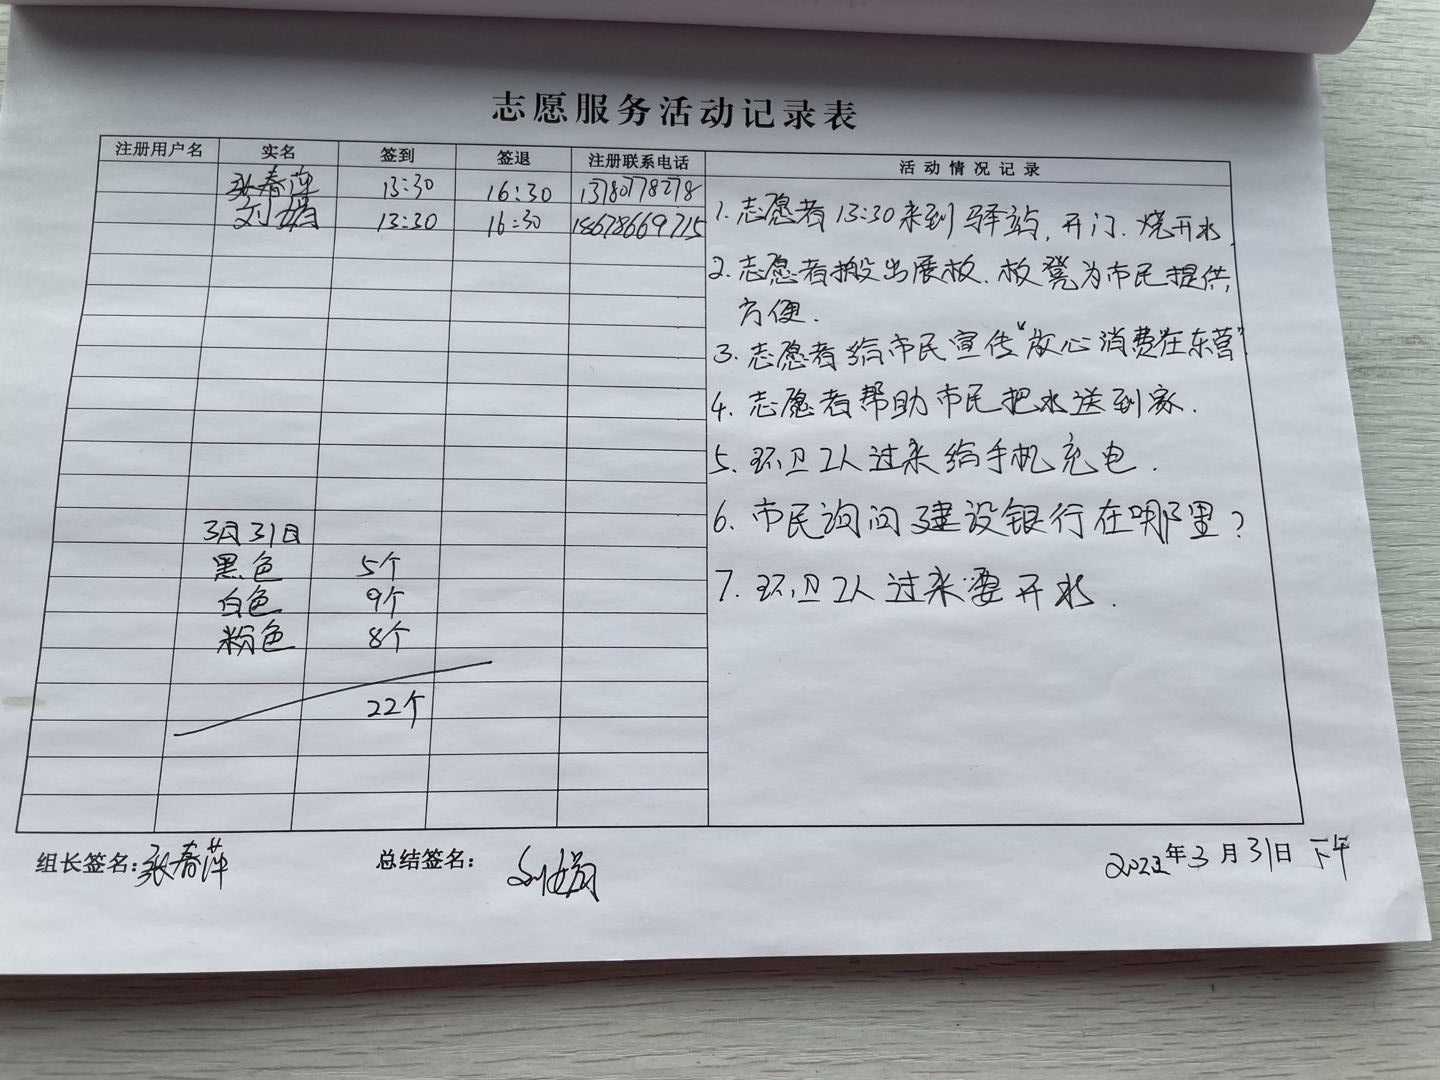 志愿服务活动记录表
注册用户名 实名 签到 签退 注册联系电话 活动情况记录
张春萍 13:30 16:30 13780778278
刘娟 13:30 16:30 18678669715
1. 志愿者13:30来到驿站,开门.烧开水.
2. 志愿者搬出展板.板凳为市民提供
方便.
3. 志愿者给市民宣传“放心消费在东营”
4. 志愿者帮助市民把水送到家.
5. 环卫工人过来给手机充电.
6. 市民询问建设银行在哪里?
7. 环卫工人过来要开水.
3月31日
黑色 5个
白色 9个
粉色 8个
22个
组长签名:张春萍 总结签名: 刘娟 2022年3月31日 下午